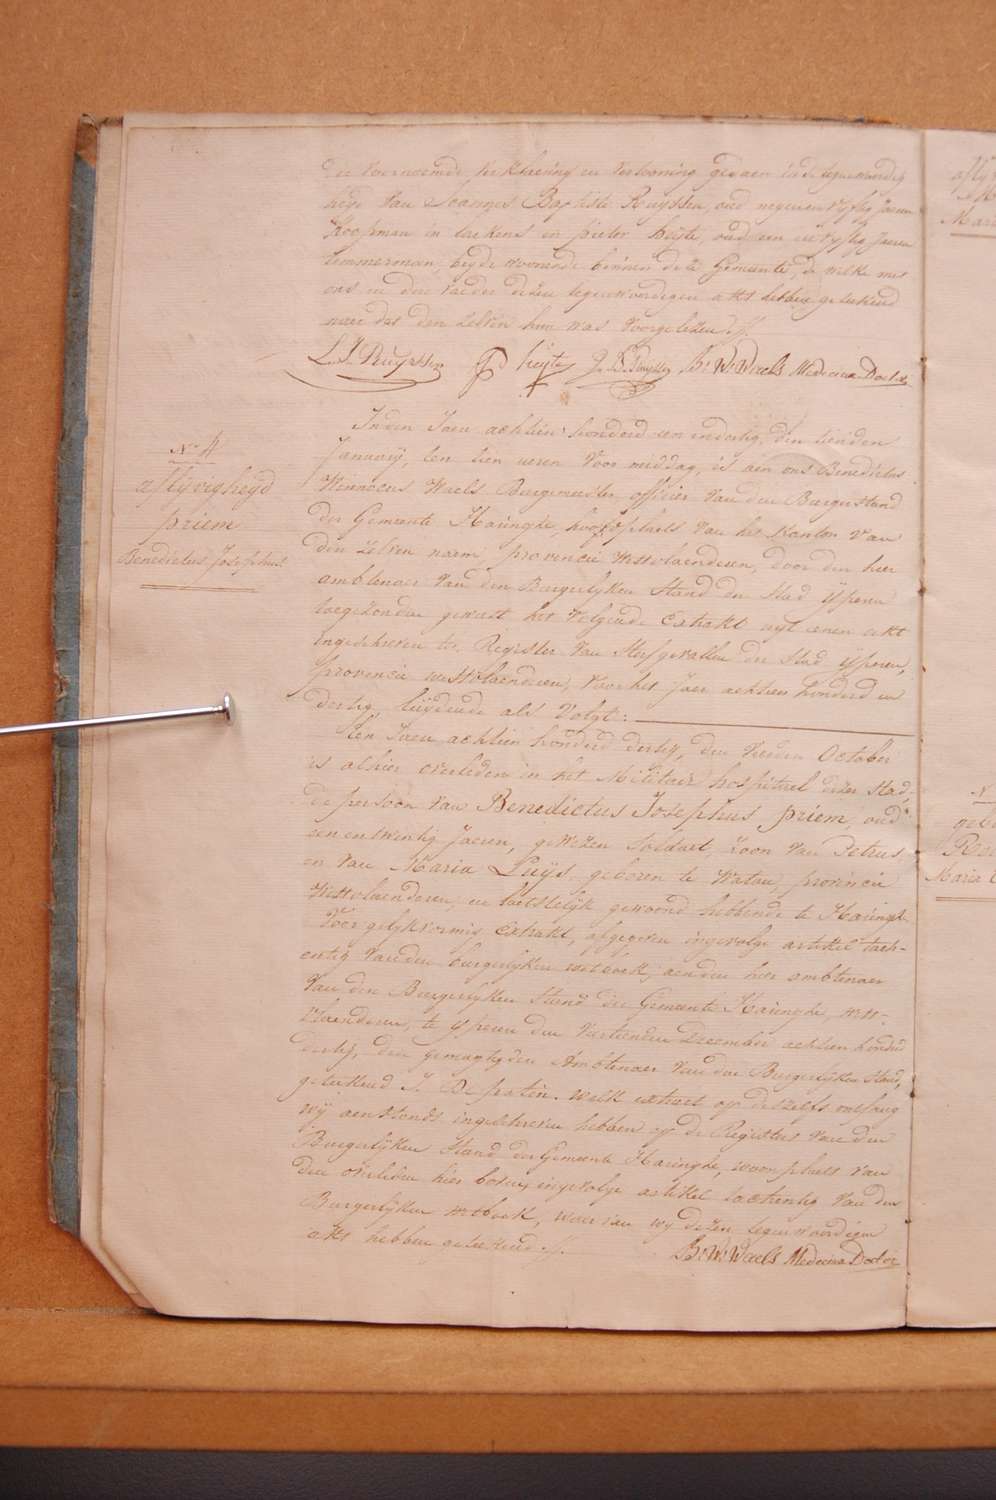 de voornoemde verklaering en vertooning gedaen in de tegenwoordig
heyd van Joannes Baptiste Ruyssen, oud negenenvyftig Jaeren
Koopman in laekens en pieter heyte, oud een en vyftig Jaeren
timmerman, beyde woonende binnen deze Gemeente, de welke met
ons en den vader dezen tegenwoordigen akt hebben geteekend
naer dat den zelven hun was voorgelezen ./.
L. J. Ruyssen P heyte J. B. Ruyssen B: W: Waels Medecinæ Doctor
N.º 4
aflyvigheyd
priem
Benedictus Josephus
In den Jaere achtien honderd een en dertig, den tienden
January, ten tien ueren voor middag, is aen ons Benedictus
Winnocus Waels Burgemeester officier van den Burgerstand
der Gemeente Haringhe, hoofdplaets van het kanton van
den zelven naem, provincie Westvlaenderen, door den heer
ambtenaer van den Burgerlyken Stand der Stad yperen
toegezonden geweest het volgende Extrakt uyt eenen akt
ingeschreven ten Register van sterfgevallen der Stad yperen,
provincie westvlaenderen, voor het Jaer achtien honderd en
dertig, luydende als volgt:
Ten Jaere achtien honderd dertig, den vierden October
is alhier overleden in het Militair hospitael dezer Stad,
de persoon van Benedictus Josephus priem, oud
een en twintig Jaeren, gewezen soldaet, zoon van Petrus,
en van Maria Luys, geboren te Watou, provincie
Westvlaenderen, en laetstelyk gewoond hebbende te Haringhe
Voor gelykvormig Extrakt, afgegeven ingevolge artikel tach-
entig van den burgerlyken wetboek, aen den heer ambtenaer
van den Burgerlyken Stand der Gemeente Haringhe, west-
vlaenderen, te yperen den veertienden December achtien honderd
dertig, den gemagtigden Ambtenaer van den Burgerlyken stand,
geteekend J. De patin. welk extract op deszelfs ontfang
wy aenstonds ingeschreven hebben op de Registers van den
Burgerlyken Stand der Gemeente Haringhe, woonplaets van
den overleden hier boven, ingevolge artikel tachentig van den
Burgerlyken wetboek, waer van wy dezen tegenwoordigen
akt hebben geteekend ./.
B: W: Waels Medecinæ Doctor
Maria